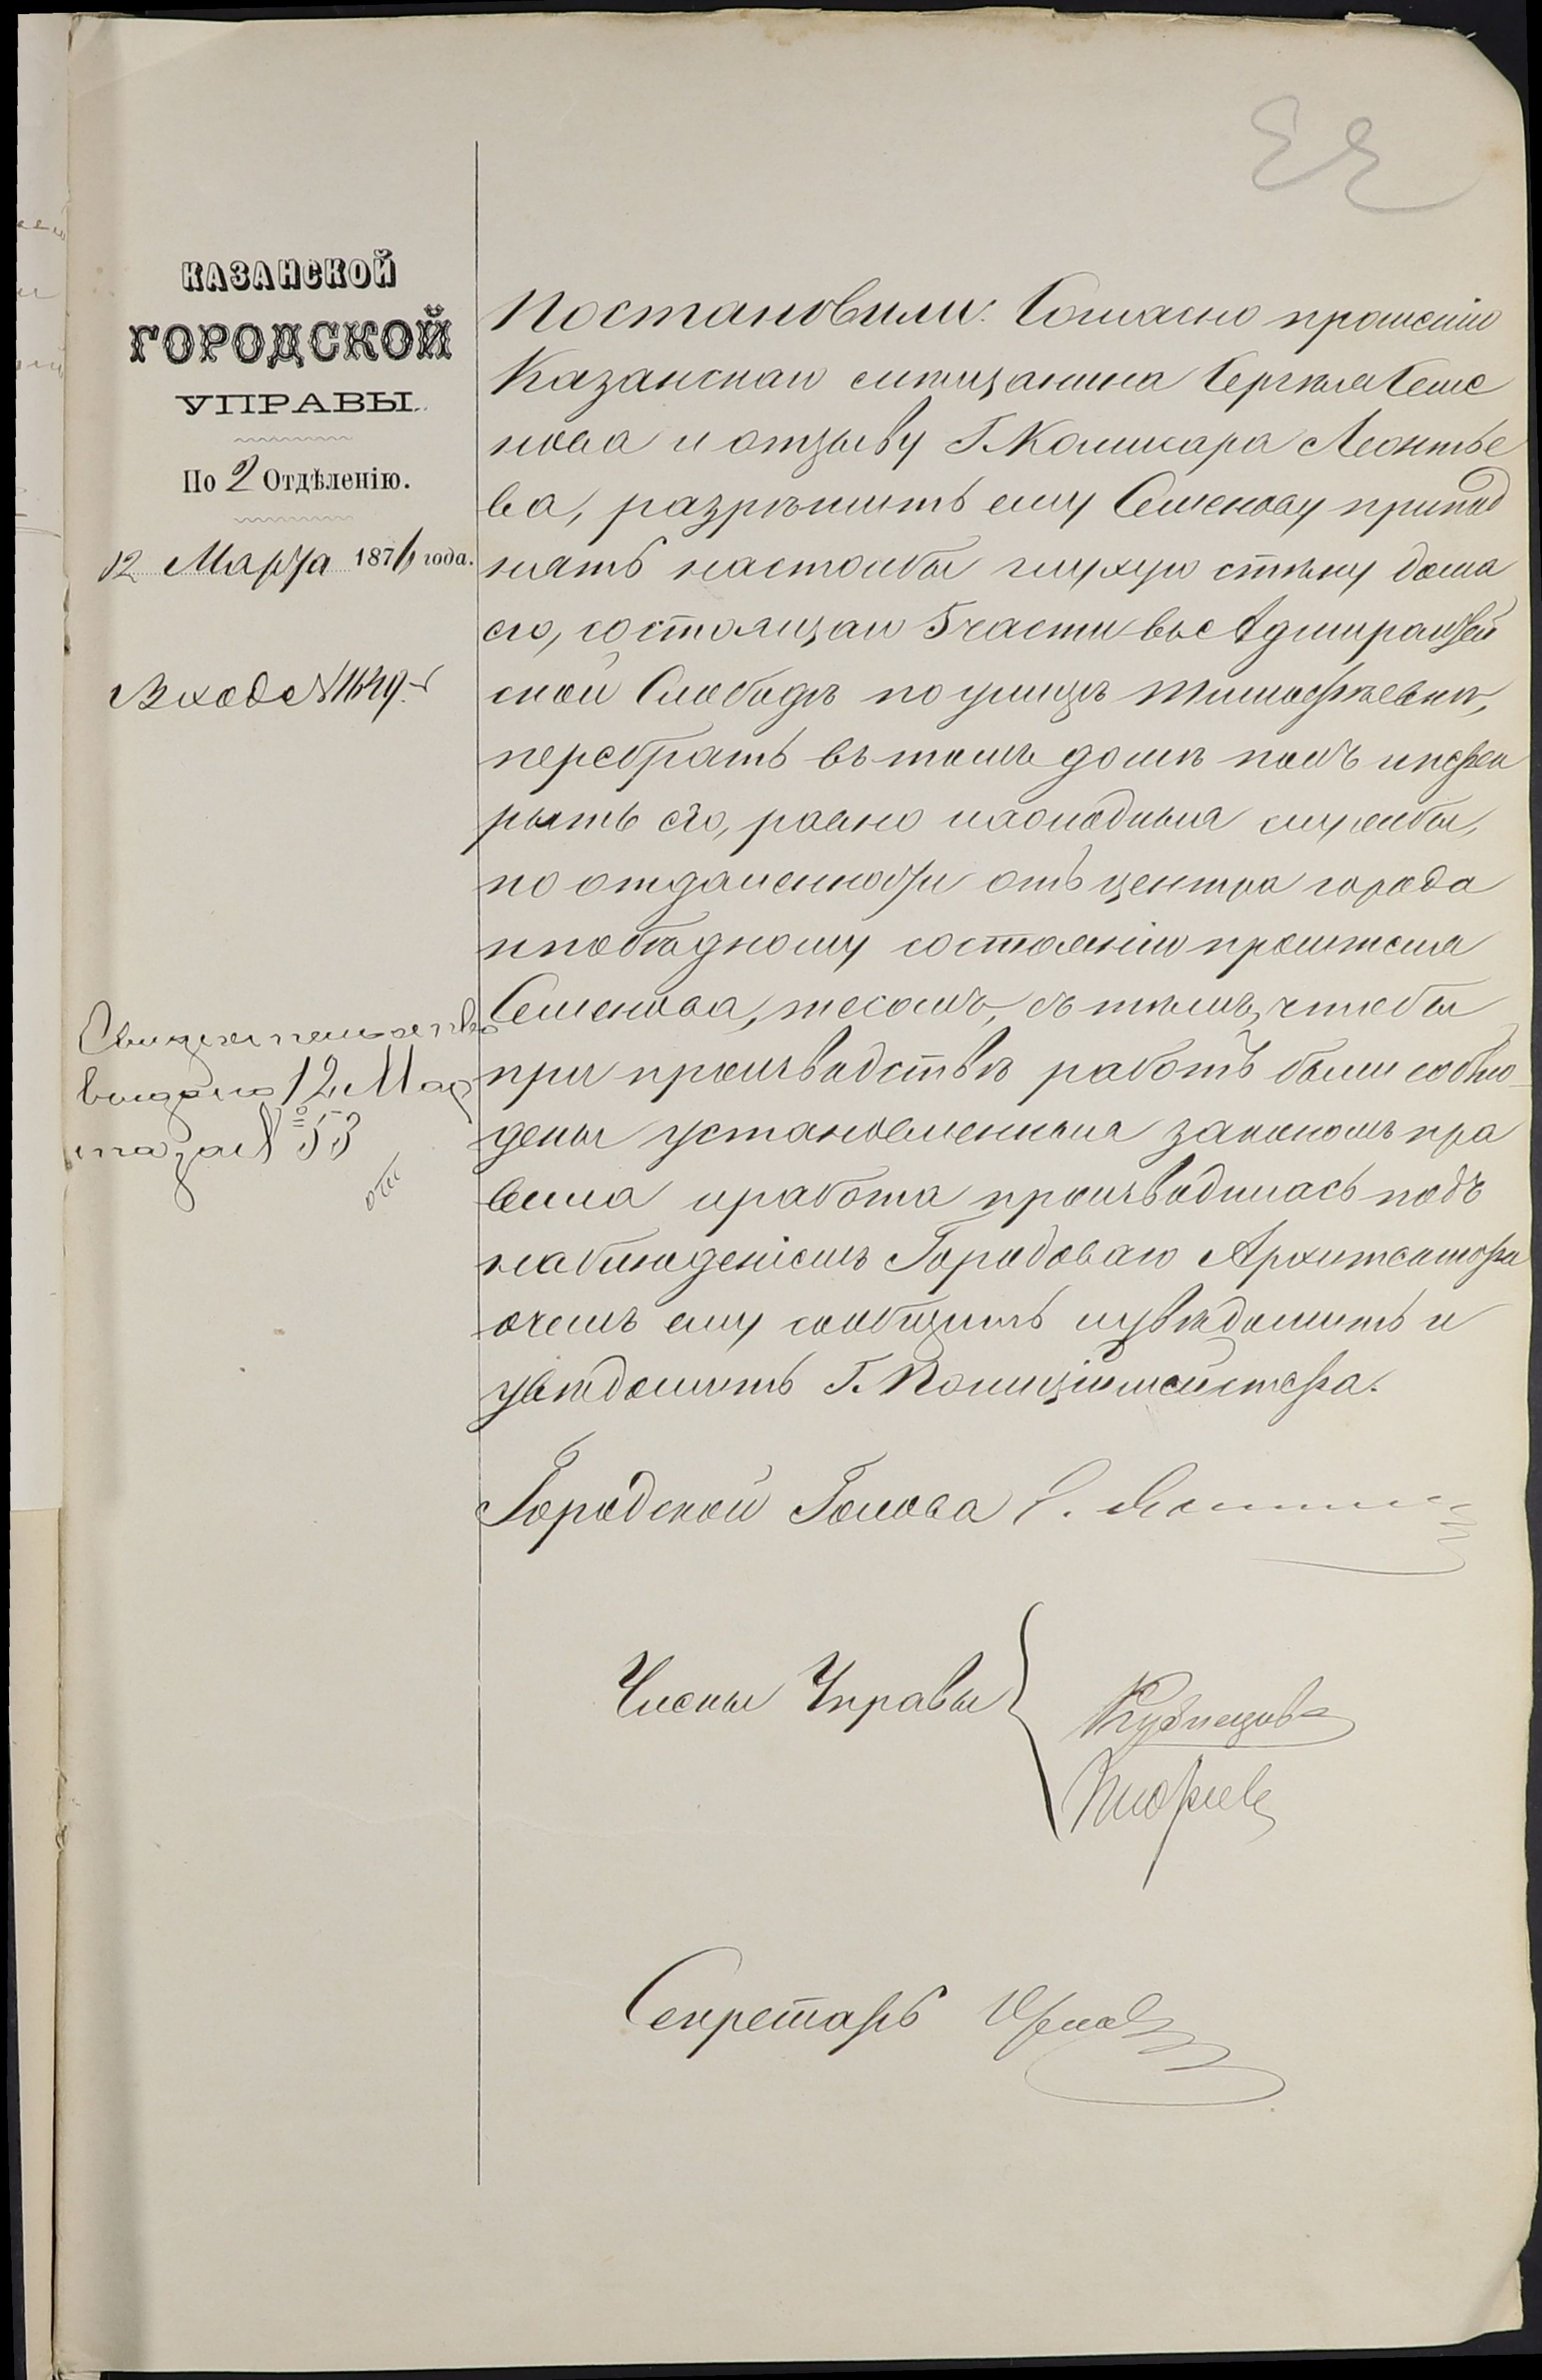 КАЗАНСКОЙ
ГОРОДСКОЙ
УПРАВЫ.
По 2 Отдѣленію.
12 Марта 1876 года.
Вход №
Свидетельство
выдано 12 Мар
та за № 53
Постановили: Согласно прошенію
Казанскаго мѣщанина Сергѣя Семе
нова и отзыву Г. Комисара Леонтье
ва, разрѣшить ему Семенову припод
нять на столбы глухую стѣну дома
его, состоящаго 5 части въ Адмиралтей
ской Слободѣ по улицѣ Тимофѣевкѣ,
перебрать въ томъ домѣ полъ и перек
рыть его, равно и холодныя службы,
по отдаленности отъ центра города
и по бѣдному состоянію просителя
Семенова, тесомъ, съ тѣмъ, чтобы
при производствѣ работъ были соблю
дены установленныя закономъ пра
вила и работа производилась подъ
наблюденіемъ Городоваго Архитектора
о чемъ ему сообщить и увѣдомить и
увѣдомить Г. Полиціймейстера.
Городской Голова
Члены Управы
Кузнецовъ
Секретарь